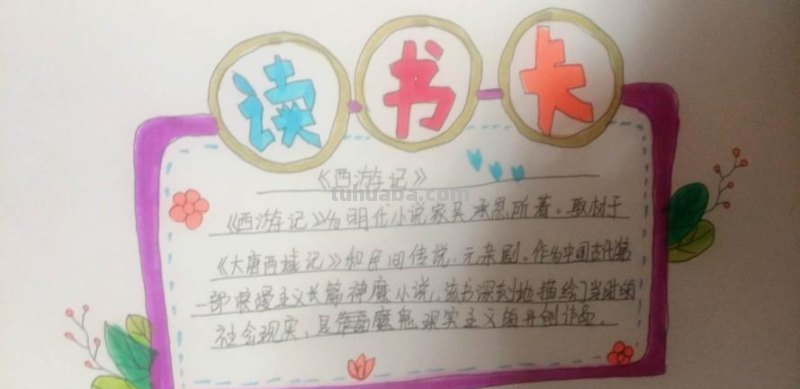 读书卡
《西游记》
tuhuaba.com
《西游记》为明代小说家吴承恩所著。取材于
《大唐西域记》和民间传说、元杂剧。作为中国古代第
一部浪漫主义长篇神魔小说,该书深刻地描绘了当时的
社会现实,是魔幻现实主义的开创作品。